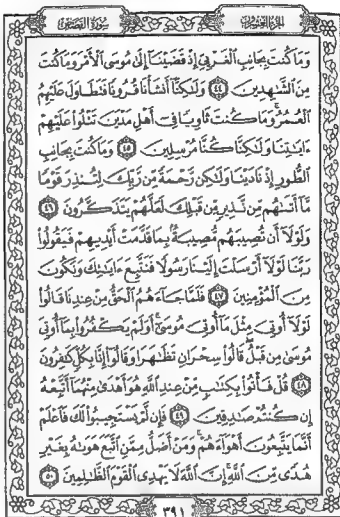 سورة القصص
الجزء العشرون
وَمَا كُنتَ بِجَانِبِ الْغَرْبِيِّ إِذْ قَضَيْنَا إِلَىٰ مُوسَى الْأَمْرَ وَمَا كُنتَ
مِنَ الشَّٰهِدِينَ ٤٤ وَلَٰكِنَّا أَنشَأْنَا قُرُونًا فَتَطَاوَلَ عَلَيْهِمُ
الْعُمُرُ وَمَا كُنتَ ثَاوِيًا فِي أَهْلِ مَدْيَنَ تَتْلُوا عَلَيْهِمْ
ءَايَٰتِنَا وَلَٰكِنَّا كُنَّا مُرْسِلِينَ ٤٥ وَمَا كُنتَ بِجَانِبِ
الطُّورِ إِذْ نَادَيْنَا وَلَٰكِن رَّحْمَةً مِّن رَّبِّكَ لِتُنذِرَ قَوْمًا
مَّا أَتَىٰهُم مِّن نَّذِيرٍ مِّن قَبْلِكَ لَعَلَّهُمْ يَتَذَكَّرُونَ ٤٦
وَلَوْلَا أَن تُصِيبَهُم مُّصِيبَةٌ بِمَا قَدَّمَتْ أَيْدِيهِمْ فَيَقُولُوا
رَبَّنَا لَوْلَا أَرْسَلْتَ إِلَيْنَا رَسُولًا فَنَتَّبِعَ ءَايَٰتِكَ وَنَكُونَ
مِنَ الْمُؤْمِنِينَ ٤٧ فَلَمَّا جَاءَهُمُ الْحَقُّ مِنْ عِندِنَا قَالُوا
لَوْلَا أُوتِيَ مِثْلَ مَا أُوتِيَ مُوسَىٰ أَوَلَمْ يَكْفُرُوا بِمَا أُوتِيَ
مُوسَىٰ مِن قَبْلُ قَالُوا سِحْرَانِ تَظَٰهَرَا وَقَالُوا إِنَّا بِكُلٍّ كَٰفِرُونَ
٤٨ قُلْ فَأْتُوا بِكِتَٰبٍ مِّنْ عِندِ اللَّهِ هُوَ أَهْدَىٰ مِنْهُمَا أَتَّبِعْهُ
إِن كُنتُمْ صَٰدِقِينَ ٤٩ فَإِن لَّمْ يَسْتَجِيبُوا لَكَ فَاعْلَمْ
أَنَّمَا يَتَّبِعُونَ أَهْوَاءَهُمْ وَمَنْ أَضَلُّ مِمَّنِ اتَّبَعَ هَوَىٰهُ بِغَيْرِ
هُدًى مِّنَ اللَّهِ إِنَّ اللَّهَ لَا يَهْدِي الْقَوْمَ الظَّٰلِمِينَ ٥٠
٣٩١